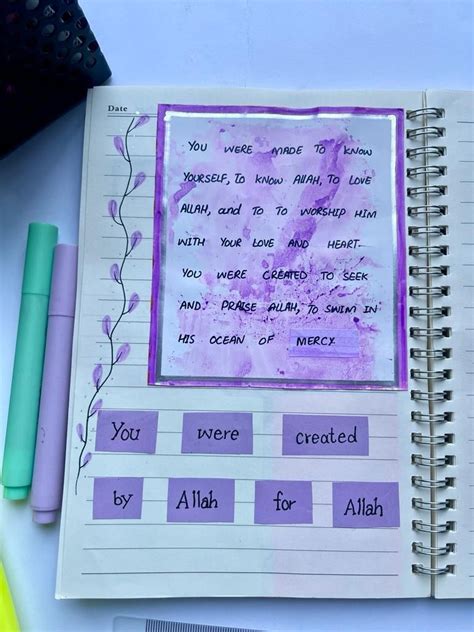 Date
YOU WERE MADE TO KNOW
YOURSELF, TO KNOW ALLAH, TO LOVE
ALLAH, and TO TO WORSHIP HIM
WITH YOUR LOVE AND HEART
YOU WERE CREATED TO SEEK
AND PRAISE ALLAH, TO SWIM IN
HIS OCEAN OF MERCY
You were created
by Allah for Allah